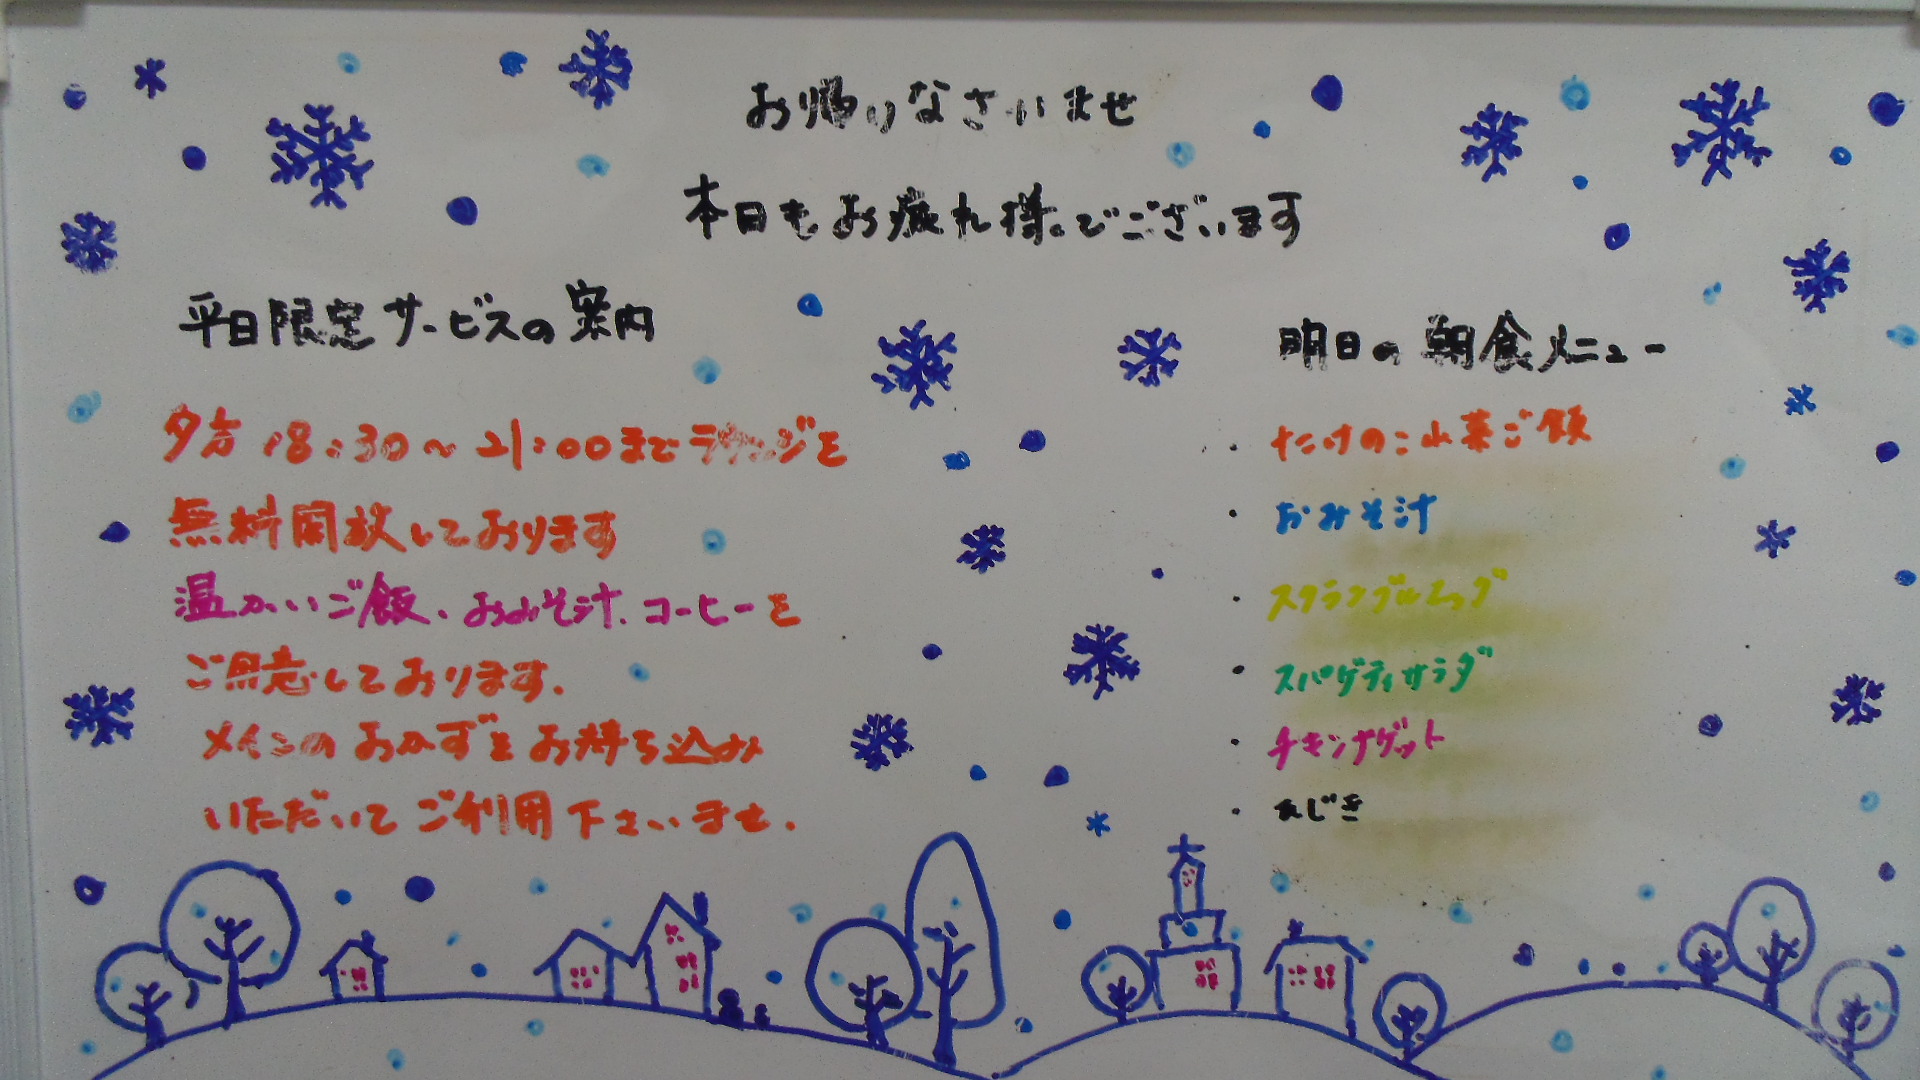 お帰りなさいませ
本日もお疲れ様でございます
平日限定サービスの案内
夕方18:30~21:00までラウンジを
無料開放しております
温かいご飯、おみそ汁、コーヒーを
ご用意しております.
メインのおかずをお持ち込み
いただいてご利用下さいませ.
明日の朝食メニュー
・たけのこ山菜ご飯
・おみそ汁
・スクランブルエッグ
・スパゲティサラダ
・チキンナゲット
・ひじき